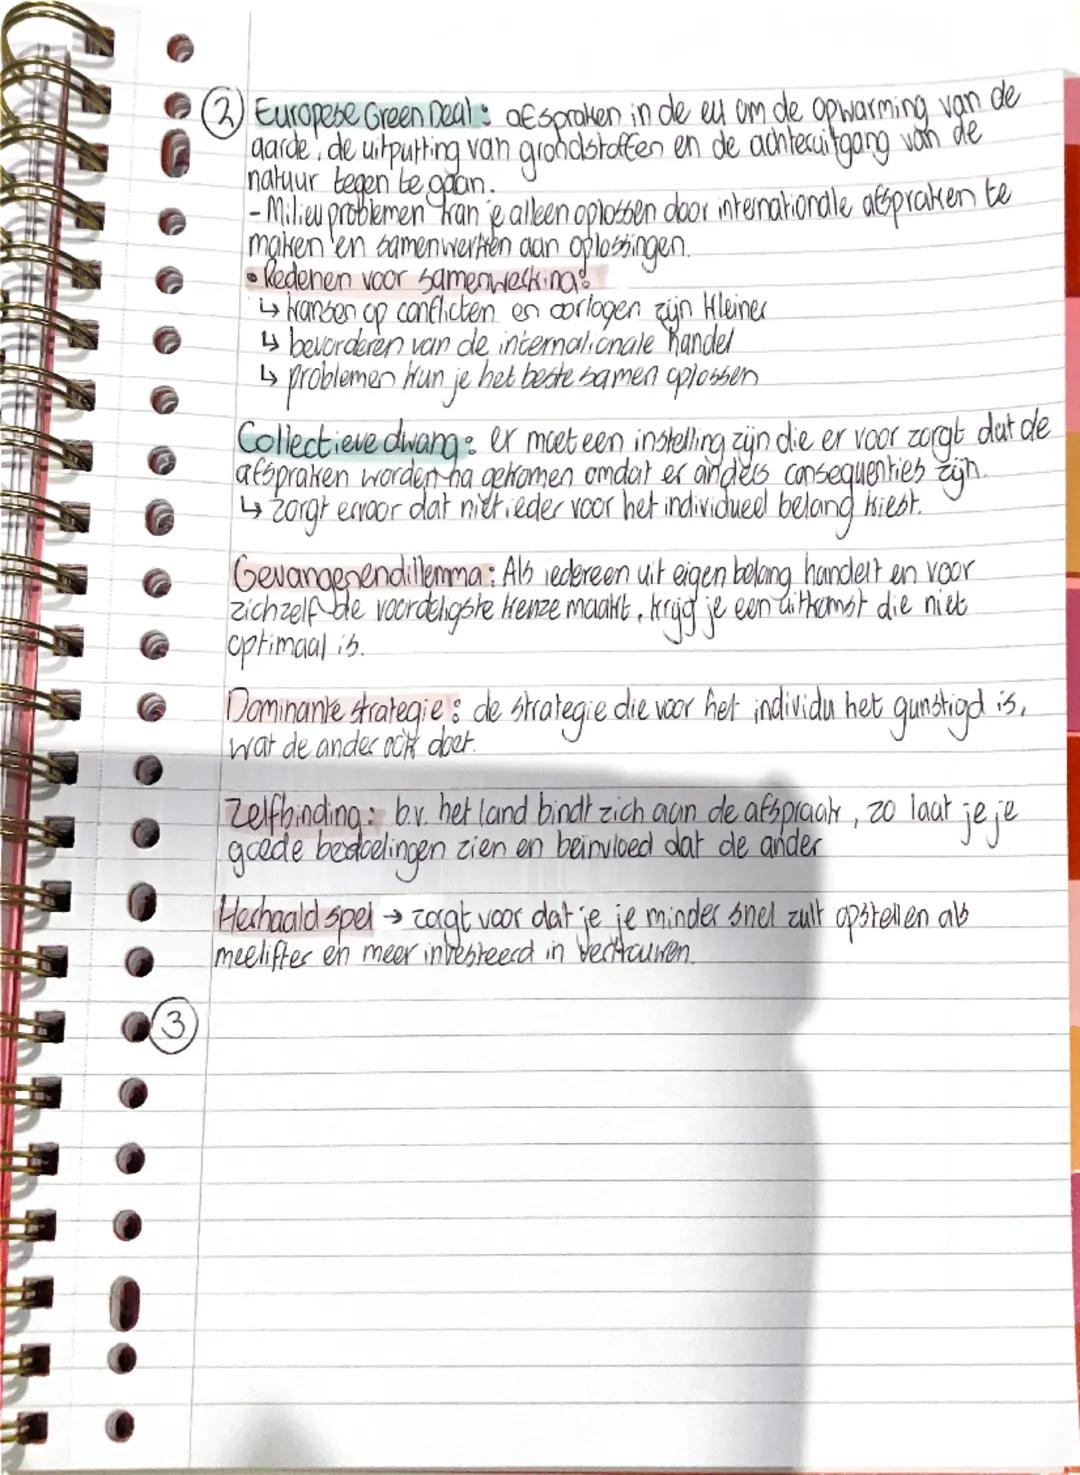 ② Europese Green Deal: afspraken in de eu om de opwarming van de
aarde, de uitputting van grondstoffen en de achteruitgang van de
natuur tegen te gaan.
- Milieuproblemen kan je alleen oplossen door internationale afspraken te
maken en samenwerken aan oplossingen.
• Redenen voor samenwerking:
↳ kansen op conflicten en oorlogen zijn kleiner
↳ bevorderen van de internationale handel
↳ problemen kun je het beste samen oplossen
Collectieve dwang: er moet een instelling zijn die er voor zorgt dat de
afspraken worden na gekomen omdat er anders consequenties zijn.
↳ zorgt ervoor dat niet ieder voor het individueel belang kiest.
Gevangenendillemma: Als iedereen uit eigen belang handelt en voor
zichzelf de voordeligste keuze maakt, krijg je een uitkomst die niet
optimaal is.
Dominante strategie: de strategie die voor het individu het gunstigd is,
wat de ander ook doet.
Zelfbinding: b.v. het land bindt zich aan de afspraak, zo laat je je
goede bedoelingen zien en beinvloed dat de ander
Herhaald spel → zorgt voor dat je je minder snel zult opstellen als
meelifter en meer investeerd in vertrouwen.
③